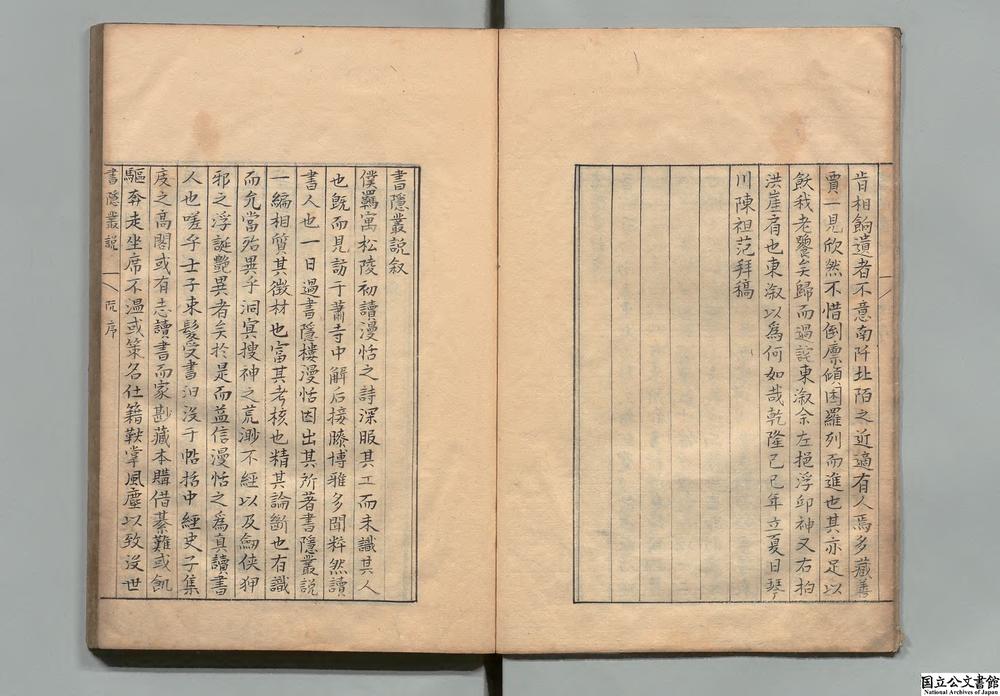 肯相餉遺者不意南阡北陌之近適有人焉多藏善
賈一見欣然不惜倒廩傾囷羅列而進也其亦足以
飫我老饕矣歸而過詫東漵余左挹浮邱神又右拍
洪崖肩也東漵以為何如哉乾隆己巳年立夏日琴
川陳祖范拜稿
書隱叢說敘
僕羈寓松陵初讀漫恬之詩深服其工而未識其人
也既而見訪于蕭寺中解后接膝博雅多聞粹然讀
書人也一日過書隱樓漫恬因出其所著書隱叢說
一編相質其徵材也富其考核也精其論斷也有識
而允當殆異乎洞冥搜神之荒渺不經以及劍俠狎
邪之浮誕艷異者矣於是而益信漫恬之為真讀書
人也嗟乎士子束髮受書汩沒于帖括中經史子集
庋之高閣或有志讀書而家尠藏本購借綦難或飢
驅奔走坐席不溫或策名仕籍鞅掌風塵以致沒世
書隱叢說
阮序
国立公文書館
National Archives of Japan